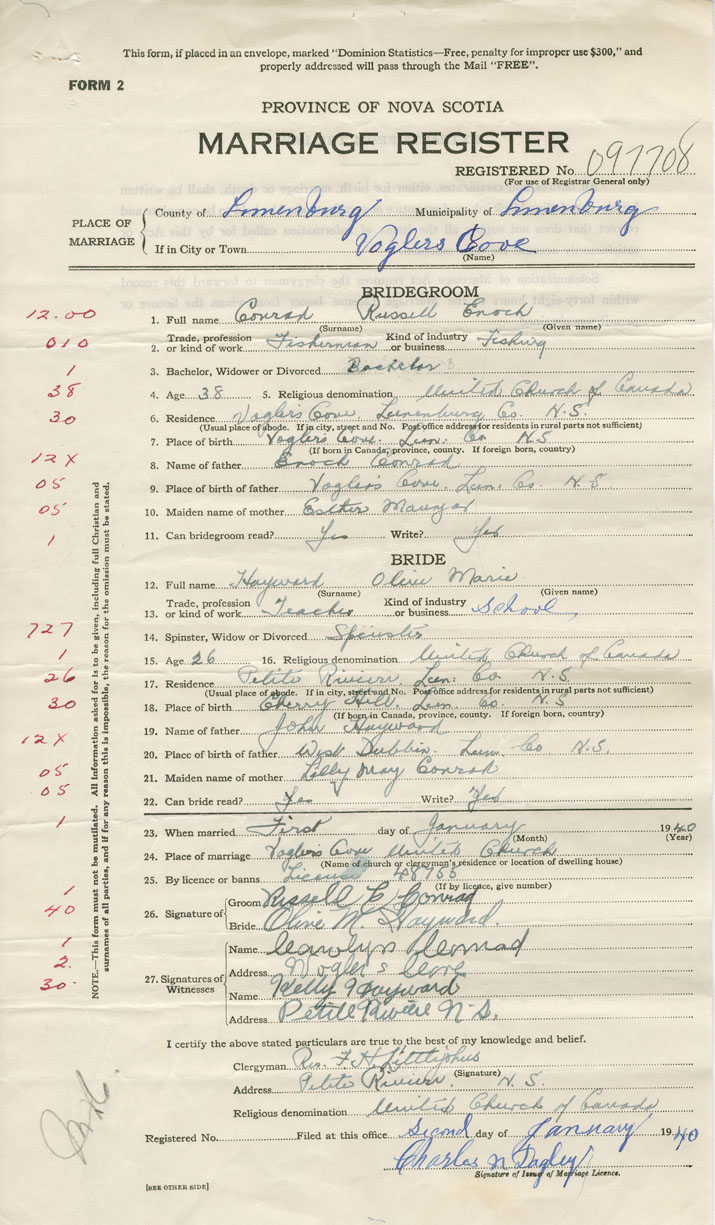 This form, if placed in an envelope, marked "Dominion Statistics—Free, penalty for improper use $300," and
properly addressed will pass through the Mail "FREE".
FORM 2
PROVINCE OF NOVA SCOTIA
MARRIAGE REGISTER
REGISTERED No. 097708
(For use of Registrar General only)
PLACE OF MARRIAGE
County of Lunenburg Municipality of Lunenburg
If in City or Town Voglers Cove
(Name)
BRIDEGROOM
12.00
1. Full name Conrad Russell Enoch
(Surname) (Given name)
010
2. Trade, profession or kind of work Fisherman Kind of industry or business Fishing
1
3. Bachelor, Widower or Divorced Bachelor
38
4. Age 38 5. Religious denomination United Church of Canada
30
6. Residence Vogler's Cove, Lunenburg Co. N.S.
(Usual place of abode. If in city, street and No. Post office address for residents in rural parts not sufficient)
7. Place of birth Vogler's Cove. Lun. Co N.S
(If born in Canada, province, county. If foreign born, country)
12X
8. Name of father Enoch Conrad
05
9. Place of birth of father Vogler's Cove. Lun. Co. N.S
05
10. Maiden name of mother Esther
1
11. Can bridegroom read? Yes Write? Yes
BRIDE
12. Full name Hayward Olive Marie
(Surname) (Given name)
13. Trade, profession or kind of work Teacher Kind of industry or business School
727
14. Spinster, Widow or Divorced Spinster
1
15. Age 26 16. Religious denomination United Church of Canada
26
17. Residence Petite Riviere. Lun: Co. N.S.
(Usual place of abode. If in city, street and No. Post office address for residents in rural parts not sufficient)
30
18. Place of birth Cherry Hill. Lun. Co. N.S
(If born in Canada, province, county. If foreign born, country)
19. Name of father John Hayward
12X
20. Place of birth of father West Dublin. Lun. Co N.S.
05
21. Maiden name of mother Lilly May Conrad
05
22. Can bride read? Yes Write? Yes
1
23. When married First day of January 1940
(Month) (Year)
24. Place of marriage Voglers Cove United Church
(Name of church or clergyman's residence or location of dwelling house)
25. By licence or banns License 48755
(If by licence, give number)
1
40
26. Signature of
Groom Russell E Conrad
Bride Olive M. Hayward.
1
2.
30.
27. Signatures of Witnesses
Name Carolyn Conrad
Address Vogler's Cove
Name Kelly Hayward
Address Petite Rivière N.S.
NOTE.—This form must not be mutilated. All information asked for is to be given, including full Christian and
surnames of all parties, and if for any reason this is impossible, the reason for the omission must be stated.
I certify the above stated particulars are true to the best of my knowledge and belief.
Clergyman Rev. F. H. Littlejohns
(Signature)
Address Petite Riviere. N.S.
Religious denomination United Church of Canada
Registered No. Filed at this office Second day of January 1940
Charles N Dagley
Signature of Issuer of Marriage Licence.
[SEE OTHER SIDE]